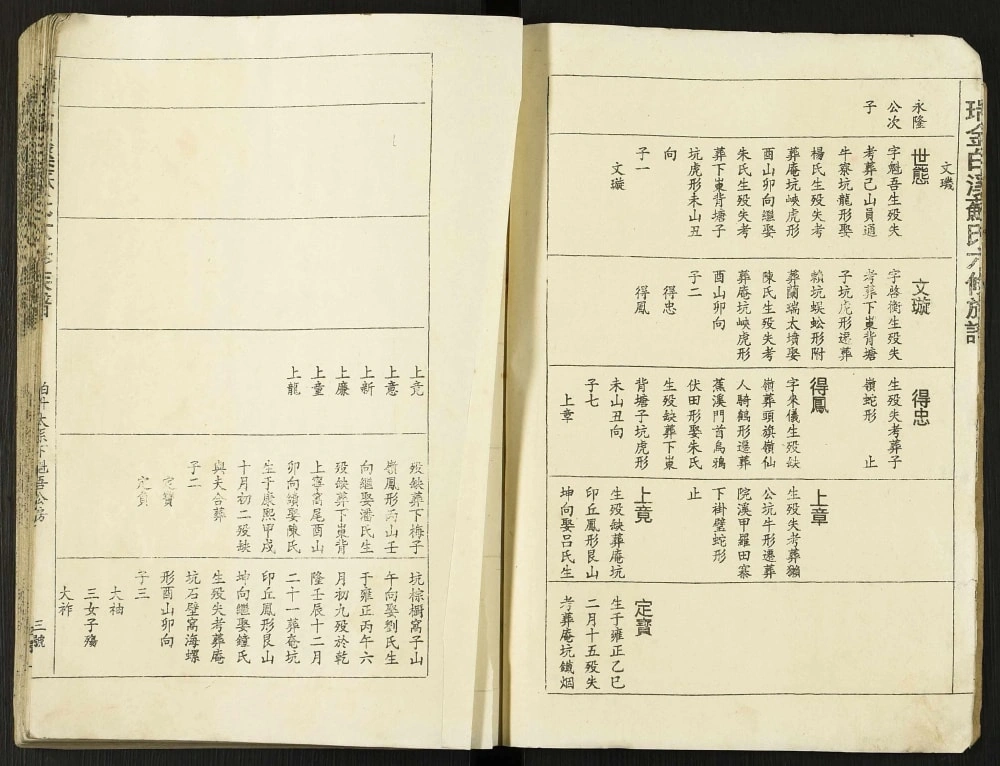 瑞金白溪蘇氏六修族譜
永隆
公次
子
文璣
世態
字魁吾生殁失
考葬己山員通
牛寮坑龍形娶
楊氏生殁失考
葬庵坑峽虎形
酉山卯向繼娶
朱氏生殁失考
葬下崬背塘子
坑虎形未山丑
向
子一
文璇
文璇
字啓衡生殁失
考葬下崬背塘
子坑虎形遷葬
賴坑蜈蚣形附
葬蘭端太墳娶
陳氏生殁失考
葬庵坑峽虎形
酉山卯向
子二
得忠
得鳳
得忠
生殁失考葬子
嶺蛇形 止
得鳳
字來儀生殁缺
嶺葬頭旗嶺仙
人騎鶴形遷葬
蕉溪門首烏鴉
伏田形娶朱氏
生殁缺葬下崬
背塘子坑虎形
未山丑向
子七
上章
上章
生殁失考葬獺
公坑牛形遷葬
院溪甲羅田寨
下掛壁蛇形
止
上竟
生殁缺葬庵坑
印丘鳳形艮山
坤向娶呂氏生
定寶
生于雍正乙巳
二月十五殁失
考葬庵坑鐵烟
上竞
上意
上新
上廉
上童
上龍
殁缺葬下梅子
嶺鳳形丙山壬
向繼娶潘氏生
殁缺葬下崬背
上寧窩尾酉山
卯向續娶陳氏
生于康熙甲戌
十月初二殁缺
與夫合葬
子二
定寶
定貴
坑棕樹窩子山
午向娶劉氏生
于雍正丙午六
月初九殁於乾
隆壬辰十二月
二十一葬庵坑
印丘鳳形艮山
坤向繼娶鐘氏
生殁失考葬庵
坑石壁窩海螺
形酉山卯向
子三
大袖
三女子殤
大祚
魁吾公房
三號